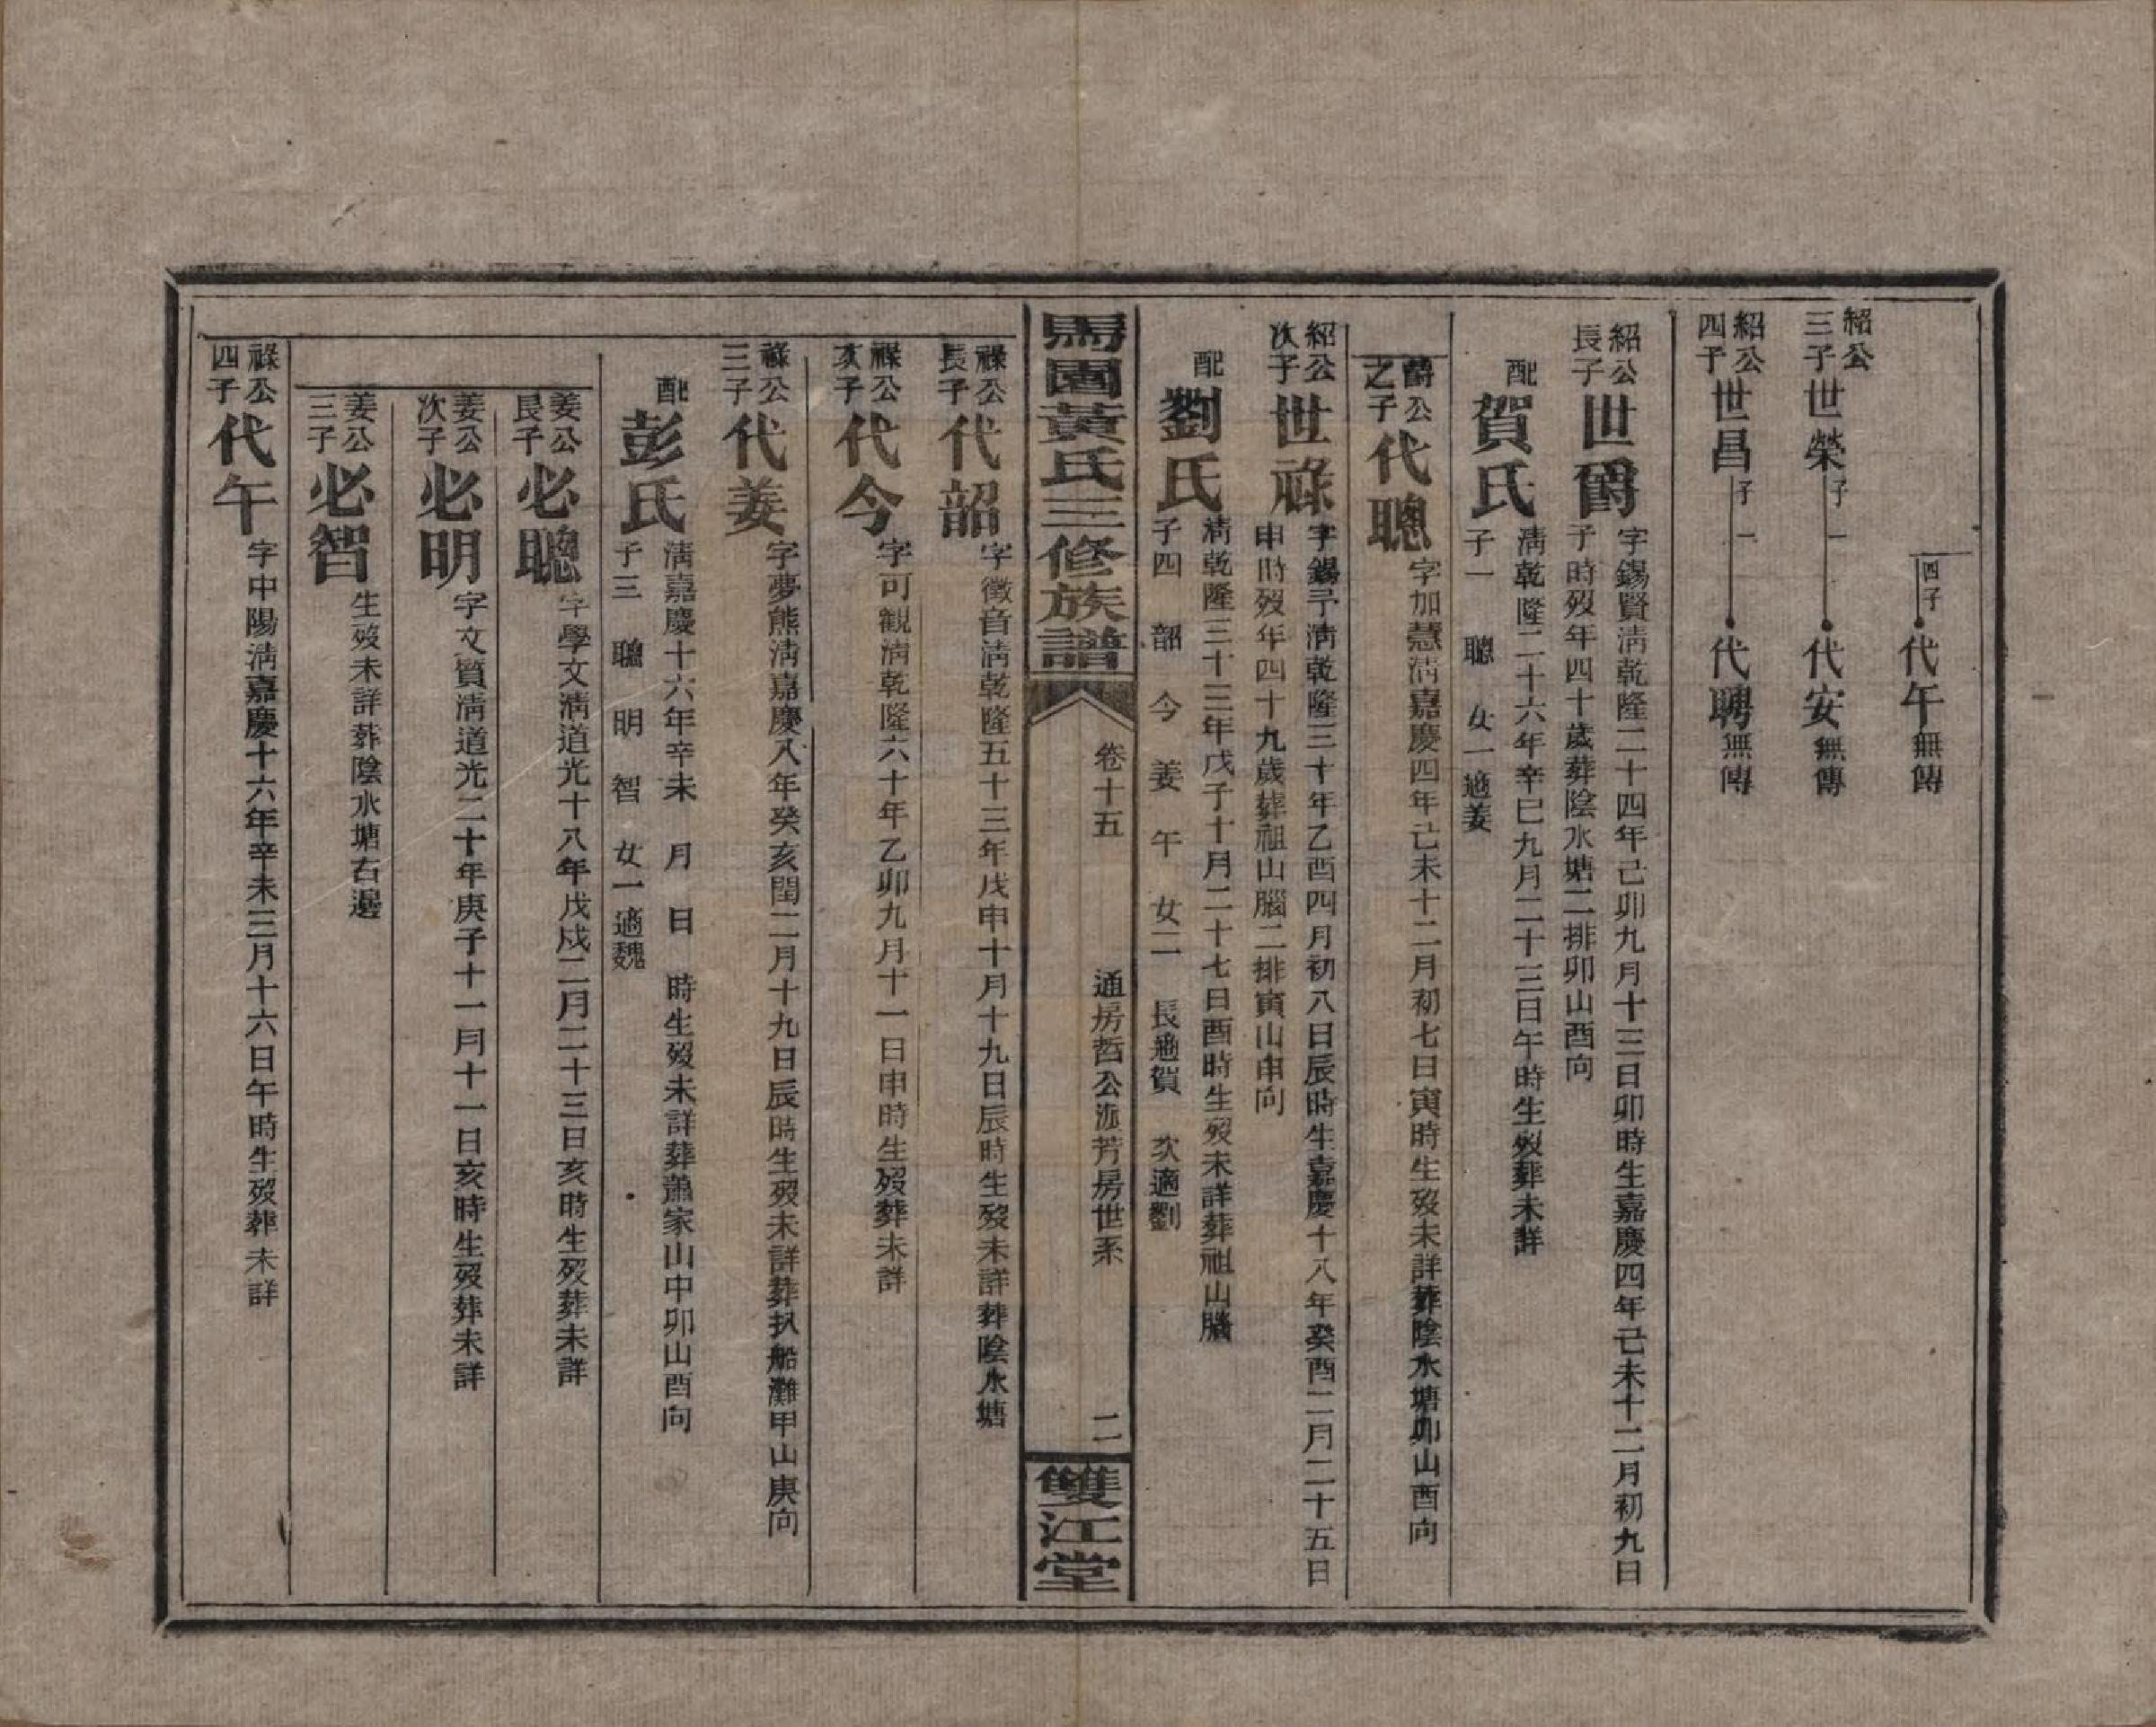 四子 代午 無傳
紹公三子 世榮 子一 代安 無傳
紹公四子 世昌 子一 代聘 無傳
紹公長子 世爵 字錫賢淸乾隆二十四年己卯九月十三日卯時生嘉慶四年己未十二月初九日
子時歿年四十歲葬陰水塘二排卯山酉向
配 賀氏 淸乾隆二十六年辛巳九月二十三日午時生歿葬未詳
子一 聰 女一適姜
爵公之子 代聰 字加慧淸嘉慶四年己未十二月初七日寅時生歿未詳葬陰水塘卯山酉向
紹公次子 世祿 字錫予淸乾隆三十年乙酉四月初八日辰時生嘉慶十八年癸酉二月二十五日
申時歿年四十九歲葬祖山腦二排寅山申向
配 劉氏 淸乾隆三十三年戊子十月二十七日酉時生歿未詳葬祖山腦
子四 韶 今 姜 午 女二 長適賀 次適劉
馬園黃氏三修族譜 卷十五 通房哲公派芳房世系 二 雙江堂
祿公長子 代韶 字徵音淸乾隆五十三年戊申十月十九日辰時生歿未詳葬陰水塘
祿公次子 代今 字可觀淸乾隆六十年乙卯九月十一日申時生歿葬未詳
祿公三子 代姜 字夢熊淸嘉慶八年癸亥閏二月十九日辰時生歿未詳葬扒船灘甲山庚向
配 彭氏 淸嘉慶十六年辛未 月 日 時生歿未詳葬蕭家山中卯山酉向
子三 聰 明 智 女一適魏
姜公長子 必聰 字學文淸道光十八年戊戌二月二十三日亥時生歿葬未詳
姜公次子 必明 字文質淸道光二十年庚子十一月十一日亥時生歿葬未詳
姜公三子 必智 生歿未詳葬陰水塘右邊
祿公四子 代午 字中陽淸嘉慶十六年辛未三月十六日午時生歿葬未詳